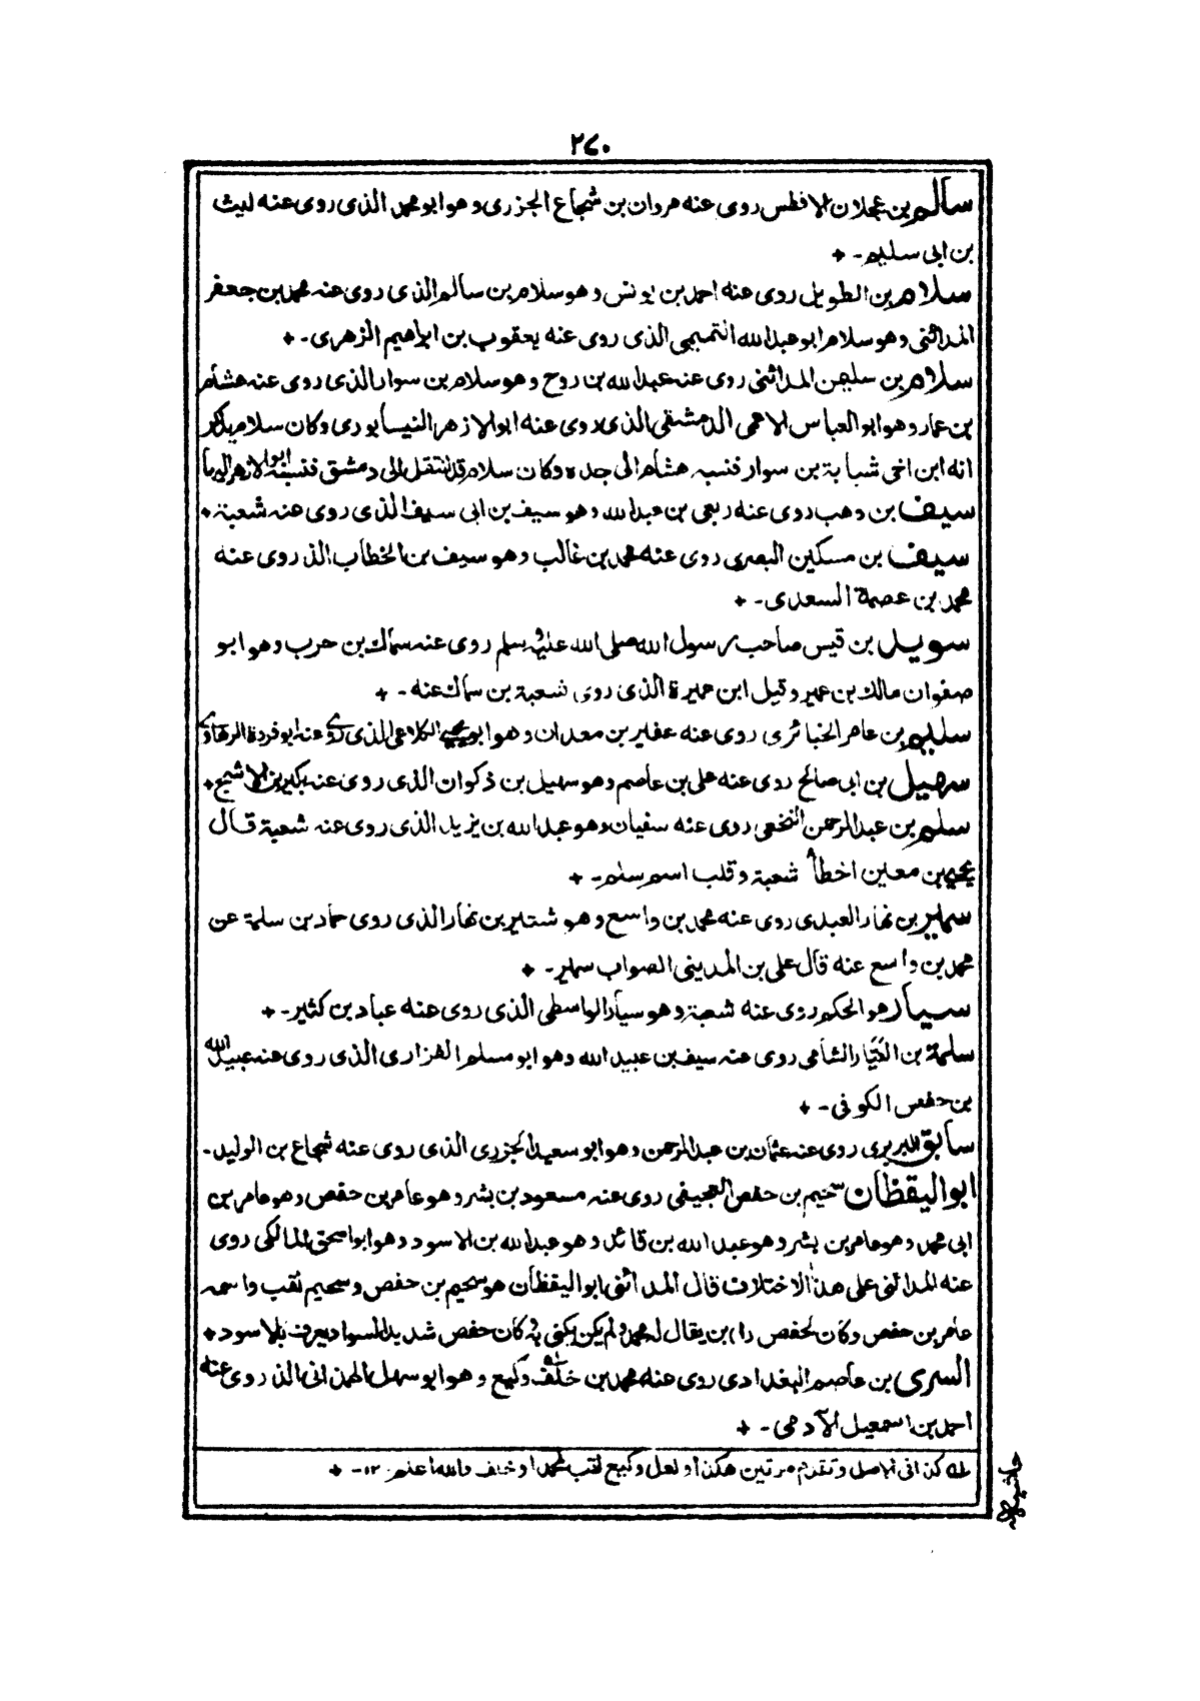 ٢٤٠
سالم بن عجلان الافطس روى عنه مروان بن شجاع الجزرى وهو ابو محمد الذى روى عنه ليث
بن ابى سليم - +
سلام بن الطويل روى عنه احمد بن يونس وهو سلام بن سالم الذى روى عنه محمد بن جعفر
المدائنى وهو سلام ابو عبد الله التميمى الذى روى عنه يعقوب بن ابراهيم الزهرى - +
سلام بن سليمن المدائنى روى عنه عبد الله بن روح وهو سلام بن سوار الذى روى عنه هشام
بن عمار وهو ابو العباس الاعمى الدمشقى الذى روى عنه ابو الازهر النيسابورى وكان سلام يذكر
انه ابن اخى شبابة بن سوار فنسبه هشام الى جده وكان سلام قد انتقل الى دمشق فنسبه ابو الازهر اليها
سيف بن وهب روى عنه ربعى بن عبد الله وهو سيف بن ابى سيف الذى روى عنه شعبة +
سيف بن مسكين البصرى روى عنه محمد بن غالب وهو سيف بن الخطاب الذ روى عنه
محمد بن عصمة السعدى - +
سويد بن قيس صاحب رسول الله صلى الله عليه وسلم روى عنه سماك بن حرب وهو ابو
صفوان مالك بن عمير وقيل ابن عميرة الذى روى شعبة بن سماك عنه - +
سليم بن عامر الخبائرى روى عنه عفير بن معدان وهو ابو يحيى الكلاعى الذى روى عنه ابو فردة الرهاوى
سهيل بن ابى صالح روى عنه على بن عاصم وهو سهيل بن ذكوان الذى روى عنه بكير بن الاشج +
سلم بن عبد الرحمن النخعى روى عنه سفيان وهو عبد الله بن يزيد الذى روى عنه شعبة قال
يحيى بن معين اخطأ شعبة وقلب اسم سلم - +
سمير بن نهار العبدى روى عنه محمد بن واسع وهو شتير بن نهار الذى روى حماد بن سلمة عن
محمد بن واسع عنه قال على بن المدينى الصواب سمير - +
سيار هو الحكم روى عنه شعبة وهو سيار الواسطى الذى روى عنه عباد بن كثير - +
سلمة بن الشامى روى عنه سيف بن عبيد الله وهو ابو مسلم الفزارى الذى روى عنه عبيد الله
بن حفص الكوفى - +
سابق البربرى روى عنه عثمان بن عبد الرحمن وهو ابو سعيد الجزرى الذى روى عنه شجاع بن الوليد -
ابو اليقظان سحيم بن حفص العجيفى روى عنه مسعود بن بشر وهو عامر بن حفص وهو عامر بن
ابى محمد وهو عامر بن بشر وهو عبد الله بن قائد وهو عبد الله بن الاسود وهو ابو اسحق المالكى روى
عنه المدائنى على هذا الاختلاف قال المدائنى ابو اليقظان هو سحيم بن حفص وسحيم لقب واسمه
عامر بن حفص وكان لحفص (ا) بن يقال له محمد ولم يكن يكنى به كان حفص شديد السواد يعرف بلاسود +
السرى بن عاصم البغدادى روى عنه محمد بن خلف وكيع وهو ابو سهل الهمدانى الذ روى عنه
احمد بن اسمعيل الآدمى - +
له كذا فى الاصل وتقدم مرتين هكذا ولعل وكيع لقب محمد او خلف والله اعلم ١٢- +
حاشيه